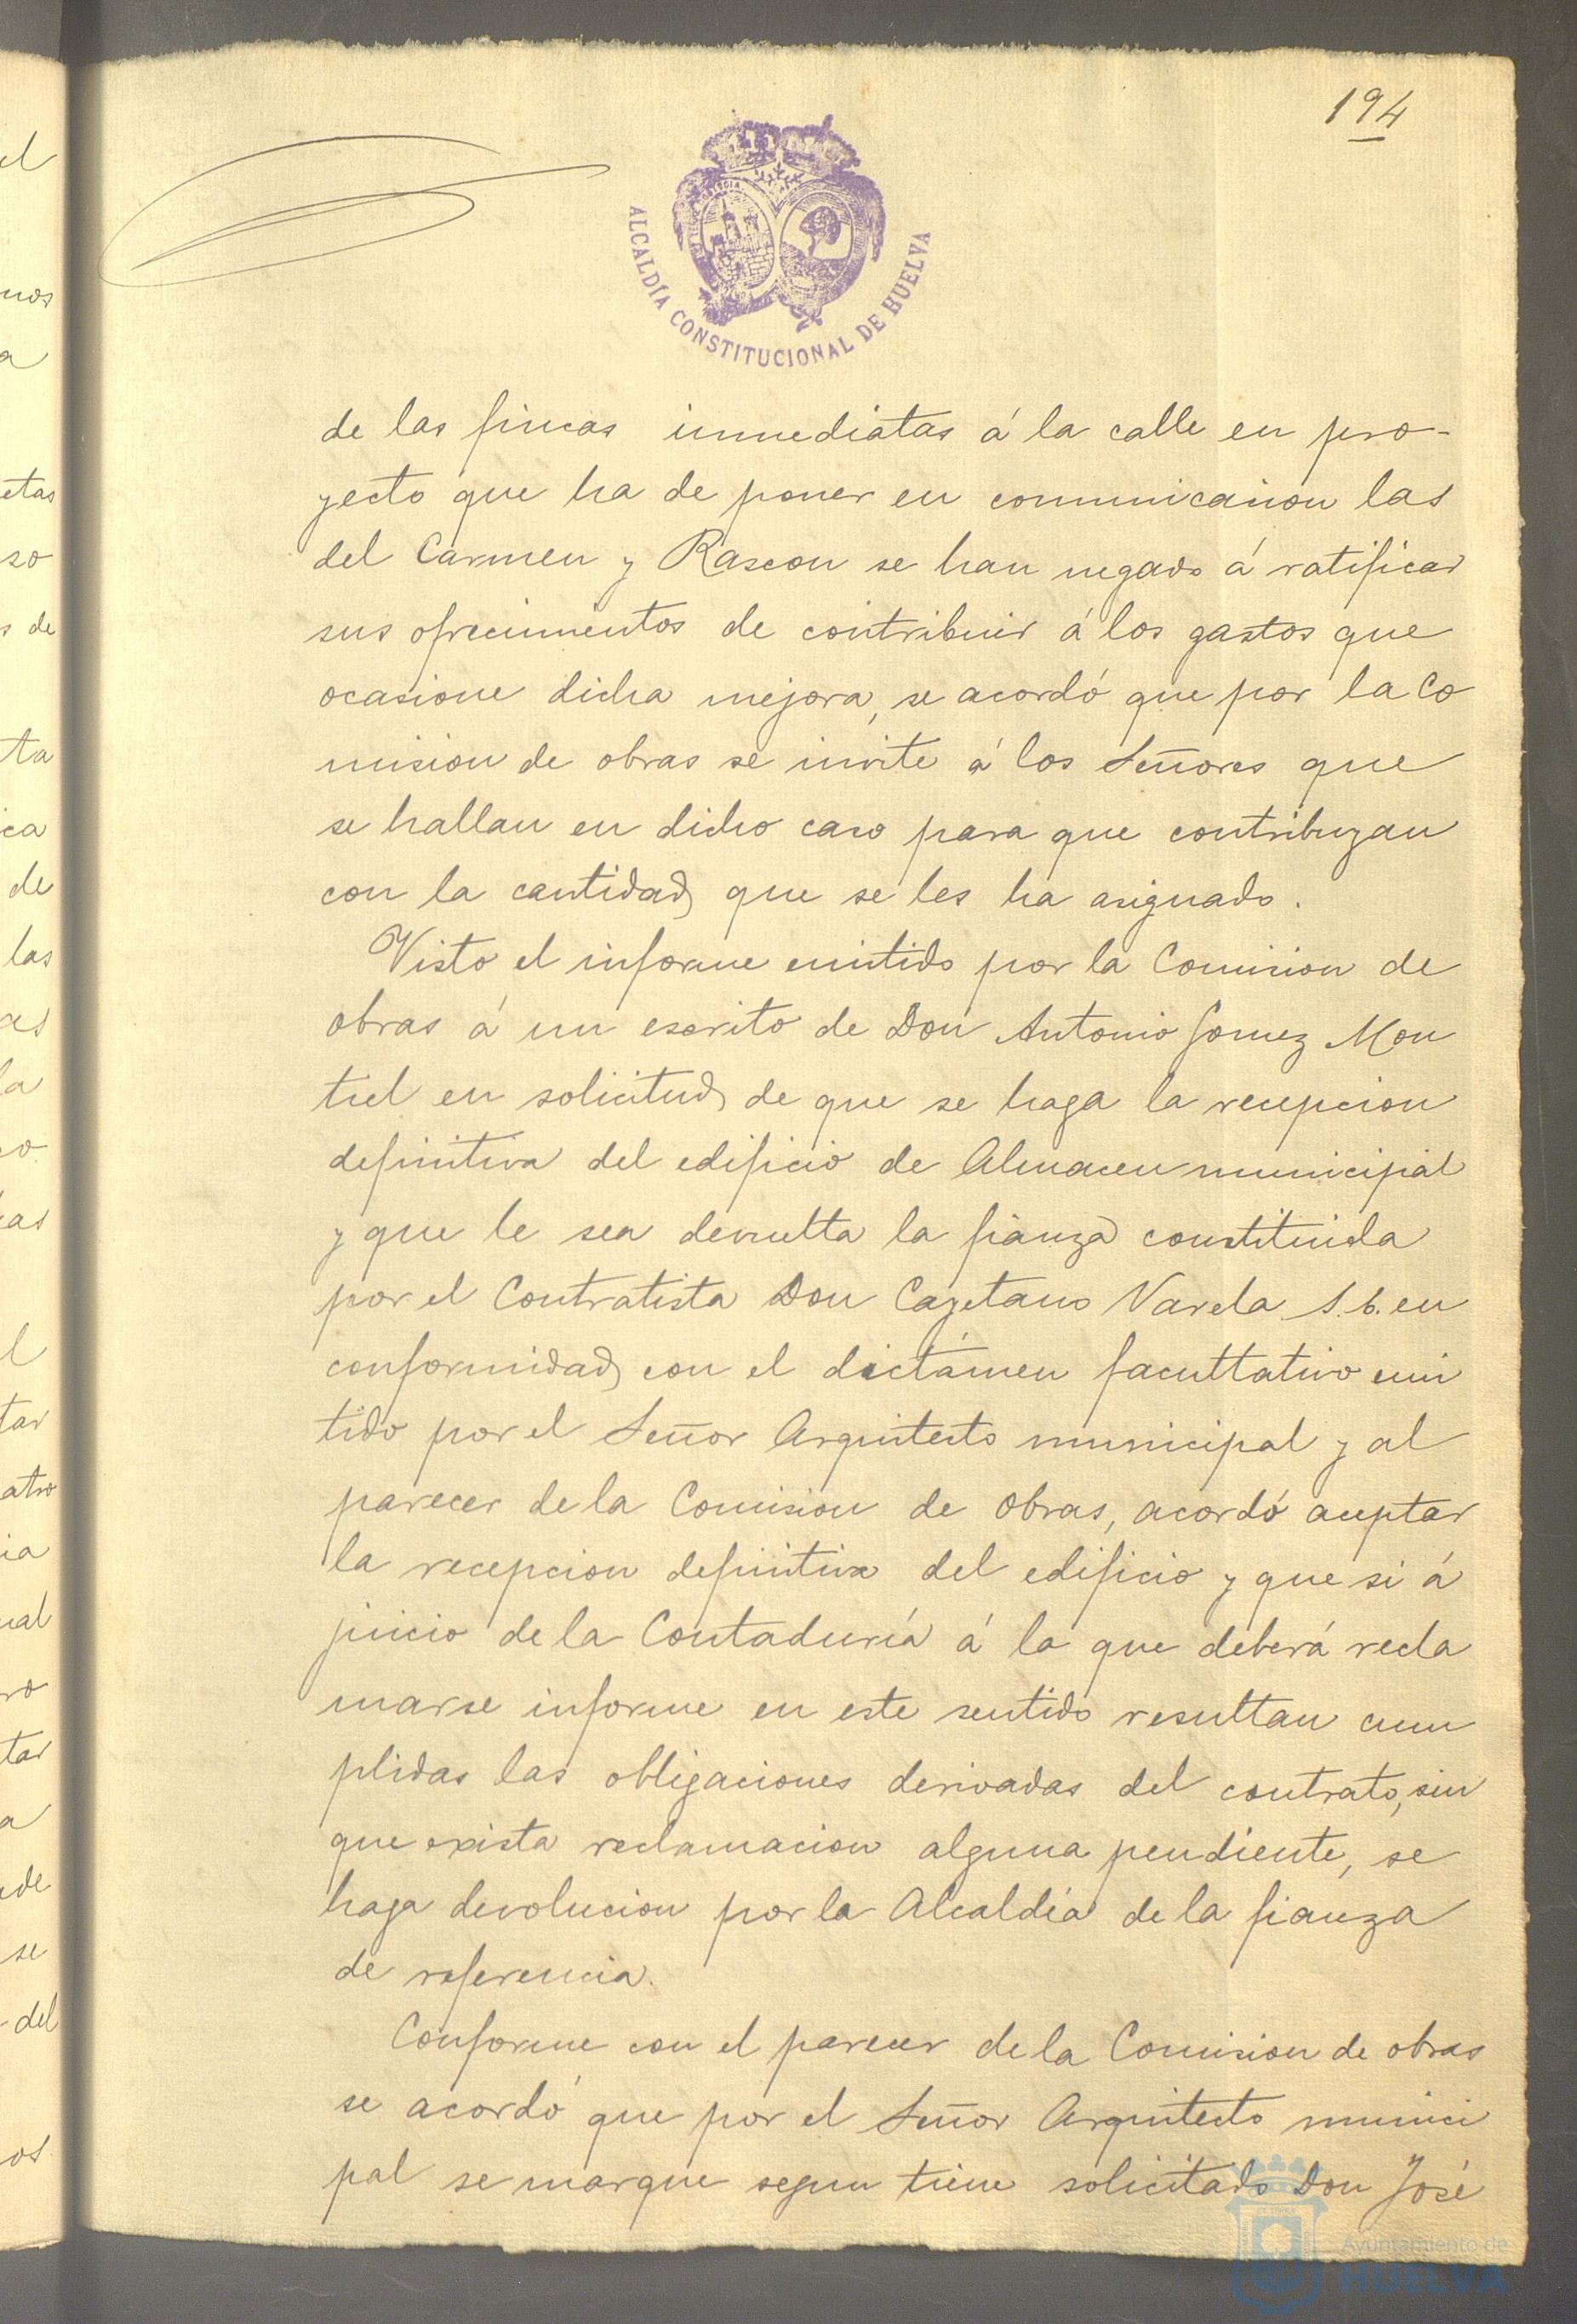 194
ALCALDÍA CONSTITUCIONAL DE HUELVA
de las fincas inmediatas á la calle en pro-
yecto que ha de poner en comunicacion las
del Carmen y Rascon se han negado á ratificar
sus ofrecimientos de contribuir á los gastos que
ocasione dicha mejora, se acordó que por la Co
mision de obras se invite á los Señores que
se hallan en dicho caso para que contribuyan
con la cantidad que se les ha asignado.
Visto el informe emitido por la Comision de
obras á un escrito de Don Antonio Gomez Mon
tiel en solicitud de que se haga la recepcion
definitiva del edificio de Almacen municipal
y que le sea devuelta la fianza constituida
por el Contratista Don Cayetano Varela S. E. en
conformidad con el dictámen facultativo emi
tido por el Señor Arquitecto municipal y al
parecer de la Comision de Obras, acordó aceptar
la recepcion definitiva del edificio y que si á
juicio de la Contaduría á la que deberá recla
marse informe en este sentido resultan cum
plidas las obligaciones derivadas del contrato, sin
que exista reclamacion alguna pendiente, se
haga devolucion por la Alcaldía de la fianza
de referencia.
Conforme con el parecer de la Comision de obras
se acordó que por el Señor Arquitecto munici
pal se marque segun tiene solicitado Don José
Ayuntamiento de
HUELVA